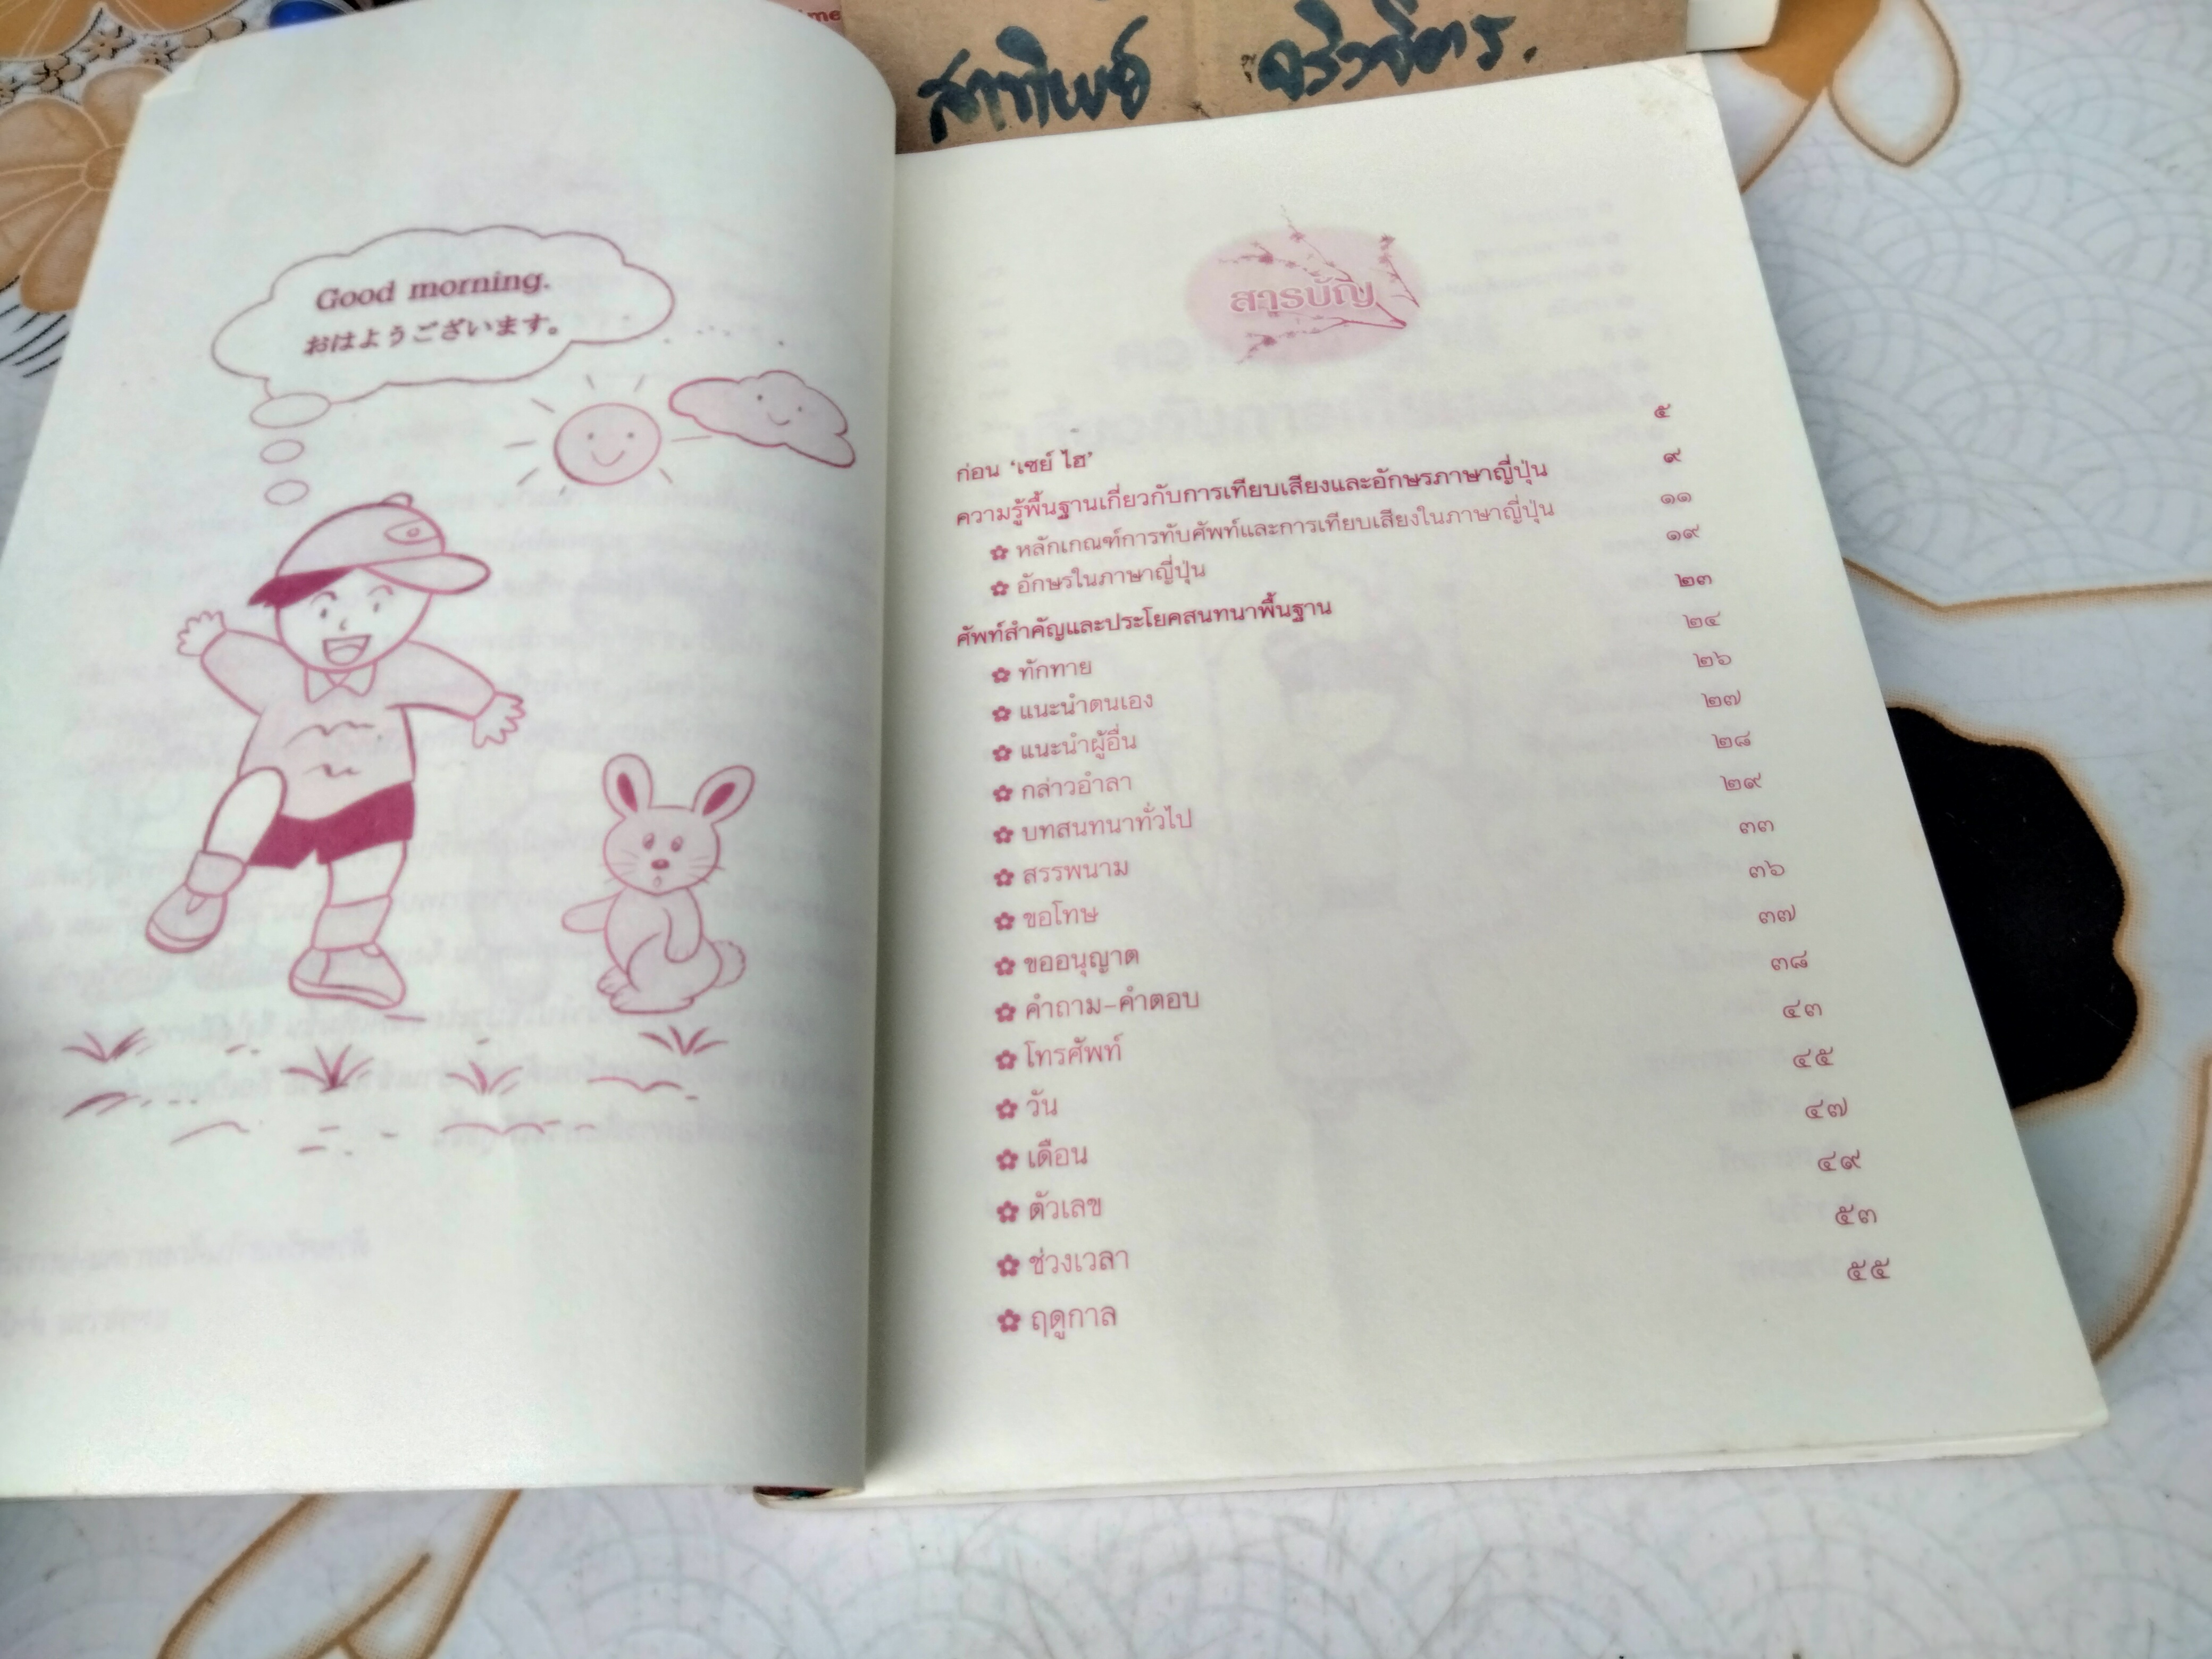 Good morning.
おはようございます。
สารบัญ
ก่อน ‘เซย์ ไฮ’ ๕
ความรู้พื้นฐานเกี่ยวกับการเทียบเสียงและอักษรภาษาญี่ปุ่น ๙
✿ หลักเกณฑ์การทับศัพท์และการเทียบเสียงในภาษาญี่ปุ่น ๑๑
✿ อักษรในภาษาญี่ปุ่น ๑๙
ศัพท์สำคัญและประโยคสนทนาพื้นฐาน ๒๓
✿ ทักทาย ๒๔
✿ แนะนำตนเอง ๒๖
✿ แนะนำผู้อื่น ๒๗
✿ กล่าวอำลา ๒๘
✿ บทสนทนาทั่วไป ๒๙
✿ สรรพนาม ๓๓
✿ ขอโทษ ๓๖
✿ ขออนุญาต ๓๗
✿ คำถาม-คำตอบ ๓๘
✿ โทรศัพท์ ๔๓
✿ วัน ๔๕
✿ เดือน ๔๗
✿ ตัวเลข ๔๙
✿ ช่วงเวลา ๕๓
✿ ฤดูกาล ๕๕